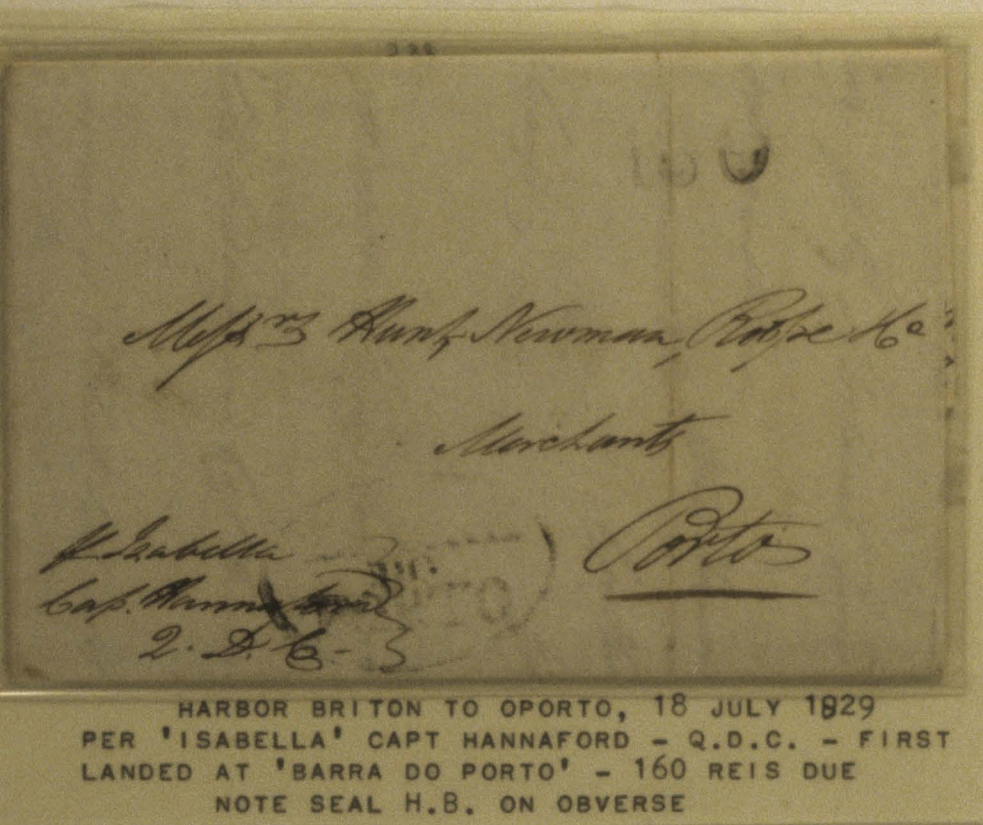 160
Messrs Hunt, Newman, Roope & Co
Merchants
Porto
p Isabella
Cap. Hannaford
Q. D. C.
HARBOR BRITON TO OPORTO, 18 JULY 1829
PER 'ISABELLA' CAPT HANNAFORD - Q.D.C. - FIRST
LANDED AT 'BARRA DO PORTO' - 160 REIS DUE
NOTE SEAL H.B. ON OBVERSE